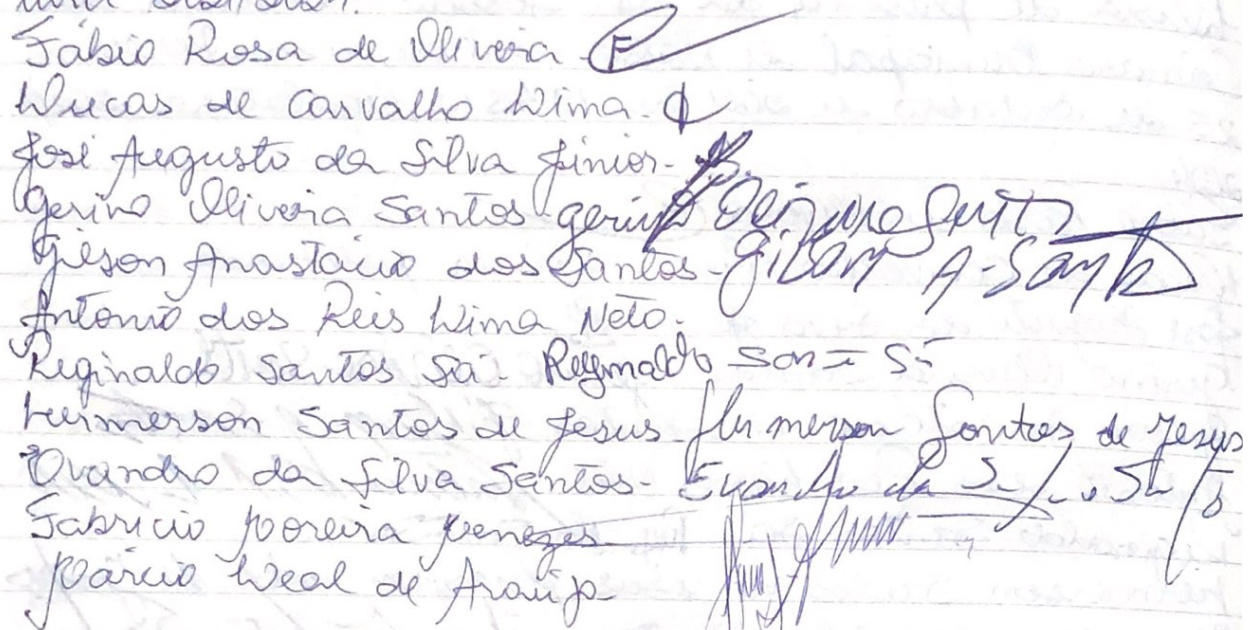 Fábio Rosa de Oliveira - F
Lucas de Carvalho Lima.
José Augusto da Silva Júnior.
Gerino Oliveira Santos gerino
Gilson Anastácio dos Santos - Gilson A. Santos
Antonio dos Reis Lima Neto.
Reginaldo Santos Sá. Reginaldo
Humerson Santos de Jesus Humerson Santos de Jesus
Evandro da Silva Santos - Evandro da
Fabricio Moreira Menezes
Márcio Leal de Araújo